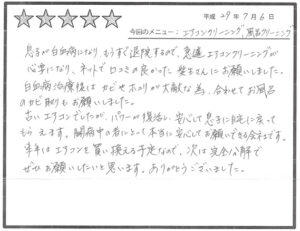 平成 29年 7月 6日
今回のメニュー：エアコンクリーニング 風呂クリーニング
息子が白血病になり、もうすぐ退院するので、急遽エアコンクリーニングが
必要になり、ネットで口コミの良かった 堂主さんにお願いしました。
白血病治療後は カビやホコリが大敵な為、合わせてお風呂
のカビ取りもお願いしました。
古いエアコンでしたが、パワーが復活し、安心して息子に自宅に戻って
もらえます。闘病中の者にとって本当に安心してお願いできる会社です。
来年はエアコンを買い換える予定なので、次は完全分解で
ぜひお願いしたいと思います。ありがとうございました。